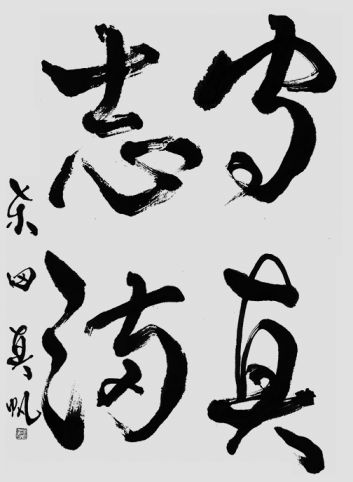 守真
志満
柴田真帆